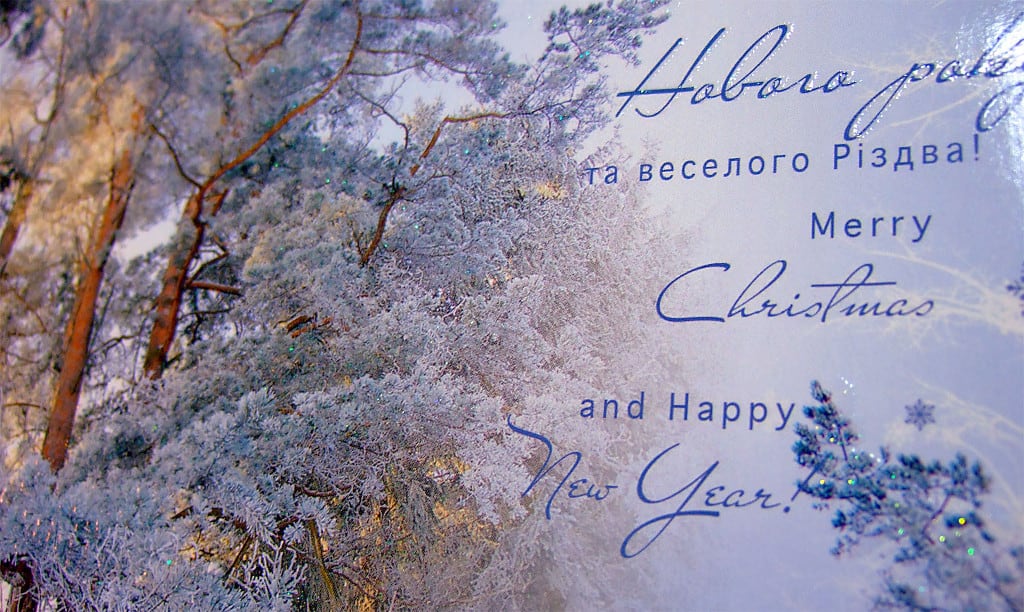 Нового року
та веселого Різдва!
Merry
Christmas
and Happy
New Year!